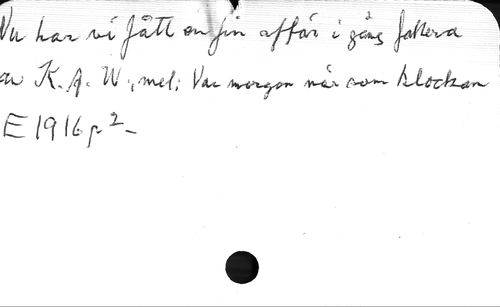 Nu har vi fått en fin affär i gång fallera
av K. A. W., mel: Var morgon när som klockan
E 1916 p 2-